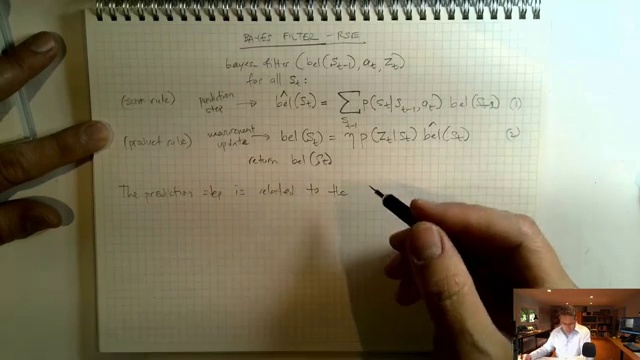 BAYES FILTER - RSE
bayes filter (bel(S_{t-1}), a_t, Z_t)
for all S_t:
(sum rule) prediction step → bel̂(S_t) = ∑_{S_{t-1}} p(S_t | S_{t-1}, a_t) bel(S_{t-1}) (1)
(product rule) measurement update → bel(S_t) = η p(Z_t | S_t) bel̂(S_t) (2)
return bel(S_t)
The prediction step is related to the